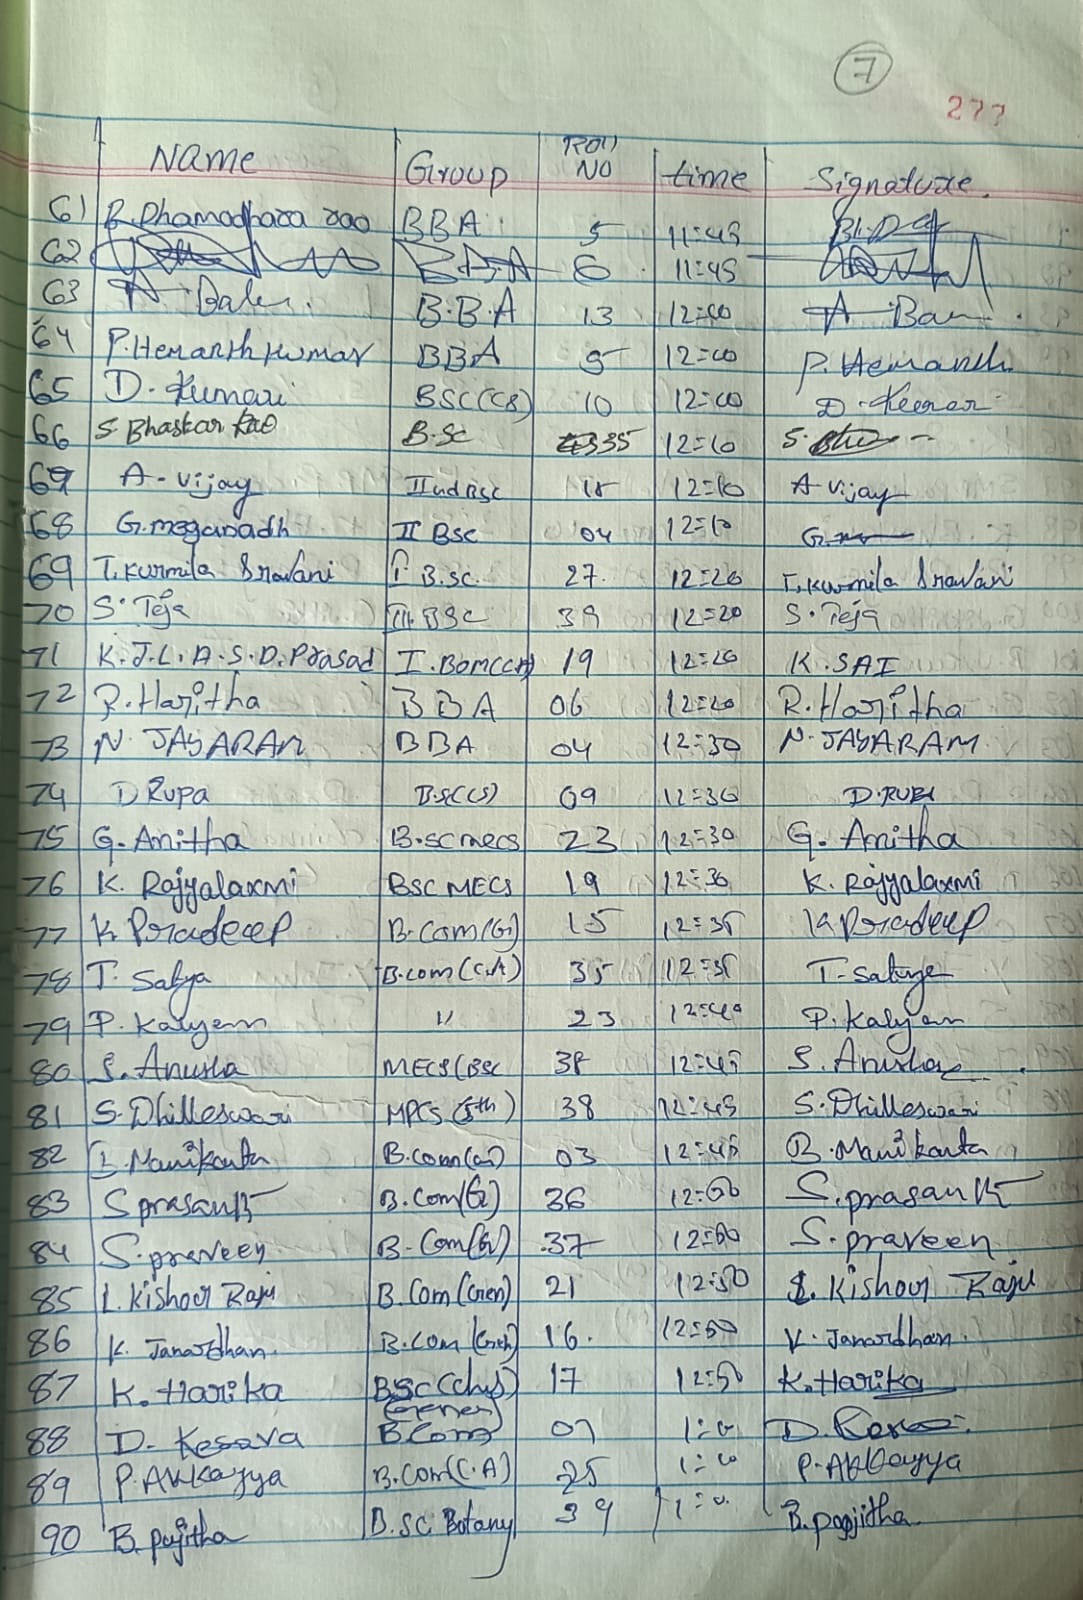 7
277
Name Group Roll NO time Signature.
61 B. Dhamodhara rao BBA 5 11:45 Bh.D
62 BBA 6 11:45
63 A BBA 13 12:00 A Ba
64 P. Hemanth kumar BBA 5 12:00 P. Hemanth
65 D. Kumari BSC(CS) 10 12:00 D. Kumari
66 S Bhaskar Rao B.Sc 35 12:10 S.
67 A. Vijay IInd Bsc 18 12:10 A Vijay
68 G. meganadh II Bsc 04 12:10 G.
69 T. Kurmila Sravani I B.sc. 27. 12:20 T. Kurmila Sravani
70 S. Teja III. BSC 39 12:20 S. Teja
71 K. J. L. A. S. D. Prasad I. Bom(CA) 19 12:20 K. SAI
72 R. Haritha BBA 06 12:20 R. Haritha
73 N. JAYARAM BBA 04 12:30 N. JAYARAM
74 D Rupa B.SC(CS) 09 12:30 D. RUPA
75 G. Anitha B.SC mecs 23 12:30 G. Anitha
76 K. Rajyalaxmi BSC MECS 19 12:30 K. Rajyalaxmi
77 K. Pradeep B.Com(G) 15 12:35 K. Pradeep
78 T. Satya B.com(C.A) 35 12:35 T. Satya
79 P. Kalyan 11 23 12:40 P. Kalyan
80 S. Anusha MECS(BSC 38 12:45 S. Anusha
81 S. Dhilleswari MPCS (5th) 38 12:45 S. Dhilleswari
82 B. Manikanta B.com(CA) 03 12:45 B. Manikanta
83 S prasanth B.Com(G) 36 12:50 S. prasanth
84 S. praveen B. Com(G) 37 12:50 S. praveen
85 L. Kishour Raju B. Com(Gen) 21 12:50 L. Kishour Raju
86 K. Janardhan. B.com (Gen) 16. 12:50 K. Janardhan.
87 K. Harika BSC(chy) 17 12:50 K. Harika
(Gener)
88 D. Kesava B.Com 07 1:00 D. Kesava
89 P. Akkayya B.Com(C.A) 25 1:00 P. Akkayya
90 B. pujitha B.SC Botany 39 1:00 B. poojitha